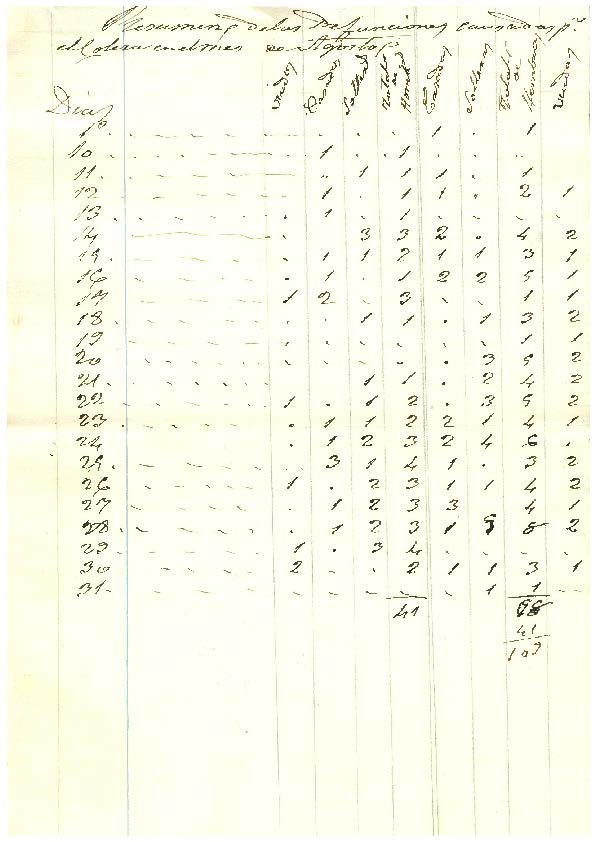 Resumen de las Defunciones causadas pr.
el Colera en el mes de Agosto
Dias Viudos Casados Solteros Total de Hombres Casadas Solteras Total de Hembras Viudas
9 . . . . 1 . 1 .
10 . 1 . 1 . . . .
11 . . 1 1 1 . 1
12 . 1 . 1 1 . 2 1
13 . 1 . 1 . . . .
14 . 3 3 2 . 4 2
15 . 1 1 2 1 1 3 1
16 . 1 . 1 2 2 5 1
17 1 2 . 3 . . 1 1
18 . . 1 1 . 1 3 2
19 . . . . . . 1 1
20 . . . . . 3 5 2
21 . . 1 1 . 2 4 2
22 1 . 1 2 . 3 5 2
23 . 1 1 2 2 1 4 1
24 . 1 2 3 2 4 6 .
25 . 3 1 4 1 . 3 2
26 1 . 2 3 1 1 4 2
27 . 1 2 3 3 4 1
28 . 1 2 3 1 5 8 2
29 1 . 3 4 . . . .
30 2 . . 2 1 1 3 1
31 . . . . . 1 1
41 68
41
109